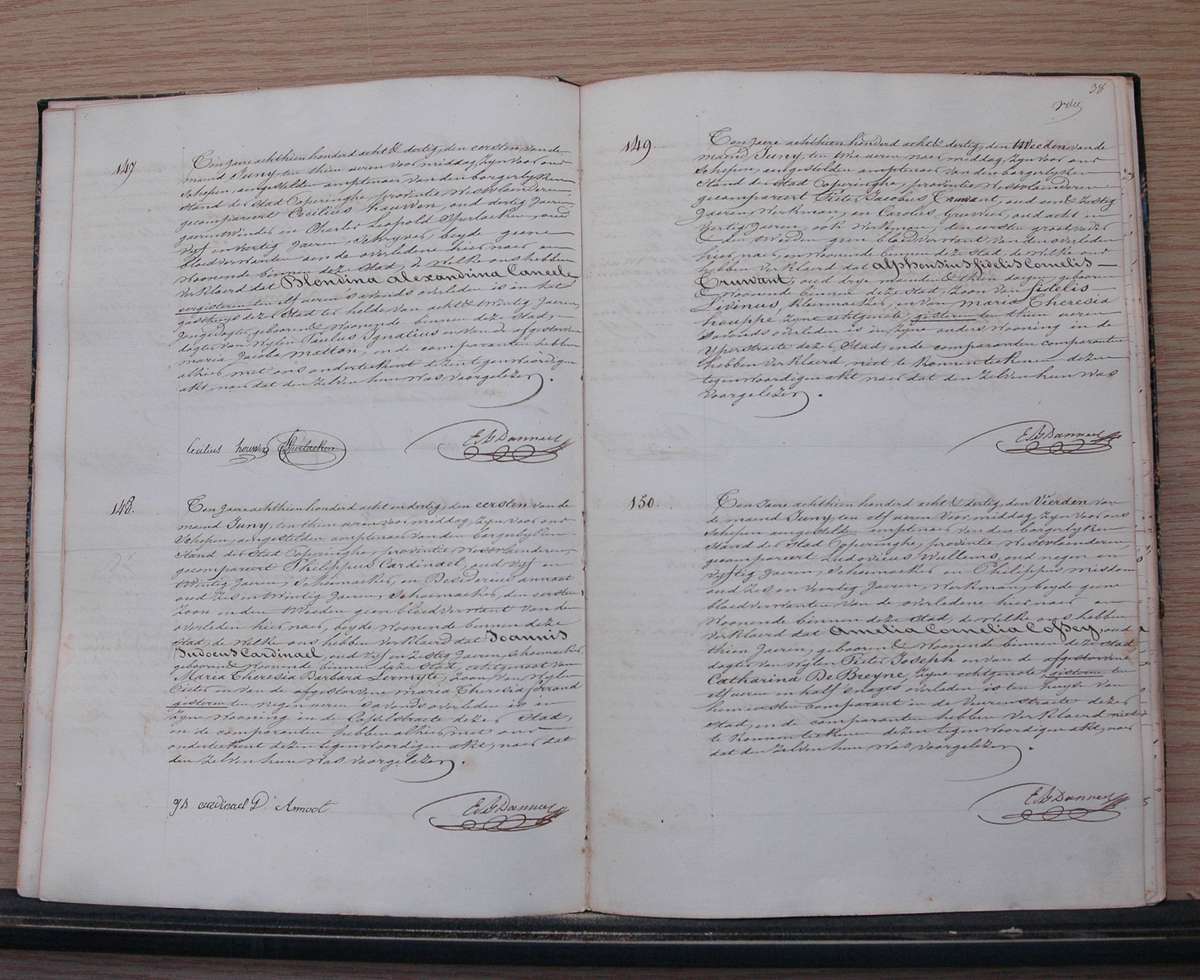 147
Ten jaere achthien honderd acht & dertig, den eersten van de
maend Juny, ten thien ueren voor middag, zyn voor ons
Schepen aengestelden amptenaer van den borgerlyken
stand der stad Poperinghe, provintie Westvlanderen
gecompareert Cecilius houwen, oud dertig Jaeren
garentwinder en Charles Leopold Sperlaeken, oud
vyf en veertig Jaeren, schryver, beyde geene
bloedverwanten aen de overledene hier naer en
woonende binnen deze Stad, de welke ons hebben
verklaerd dat Blondina Alexandrina Caneele
eergisteren ten elf ueren s'avends overleden is in het
gasthuys dezer Stad ten helde van acht & twintig Jaeren,
Jongedogter, geboren & woonende binnen deze Stad,
dogter van wylen Paulus Ignatius en van de afgestorven
maria Jacoba metton, en de comparanten hebben
alhier met ons onderteekent dezen tegenwoordigen
akt, naer dat den zelven hun was voorgelezen.
Cecilius houwen Sperlaeken E. b. Danneel
148.
Ten jaere achthien honderd acht en dertig, den eersten van de
maend Juny, ten thien ueren voor middag, zyn voor ons
Schepen, aengestelden amptenaer van den borgerlyken
Stand der Stad Poperinghe, provintie Westvlanderen,
gecompareert Philippus Cardinael, oud vyf en
twintig Jaeren, Schoemaeker, en Desiderius annoot
oud zes en twintig Jaeren, Schoemaeker, den eersten
Zoon en den tweeden geen bloedverwant van den
overleden hier naer, beyde woonende binnen deze
stad, de welke ons hebben verklaerd dat Joannis
Judocus Cardinael oud vyf en zestig Jaeren, schoemaeker,
geboren & woonende binnen deze Stad, echtgenoot van
Maria Theresia Barbara Lermyte, Zoon van wylen
Pieter en van de afgestorvene maria Theresia
gisteren ten negen ueren s'avends overleden is in
zyne wooning in de Casselstraete dezer Stad,
en de comparanten hebben alhier met ons
onderteekent dezen tegenwoordigen akt, naer dat
den zelven hun was voorgelezen.
cardinael D Amoot E. b. Danneel
38
149
Ten jaere achthien honderd acht & dertig, den tweeden van de
maend Juny, ten twee ueren naer middag, zyn voor ons
Schepen, aengestelden amptenaer van den borgerlyken
Stand der Stad Poperinghe, provintie Westvlanderen
gecompareert Pieter Jacobus Truwant, oud een & zestig
Jaeren, Werkman, en Carolus Gruwier, oud acht en
veertig Jaeren, ook werkman, den eersten grootvader
en tweeden geen bloedverwant van den overleden
hier naer, en woonende binnen deze Stad de welke ons
hebben verklaerd dat Alphonsius fidelis Cornelis
Truwant, oud drye maenden thien dagen, geboren
& woonende binnen deze stad, Zoon van fidelis
Livinus, kleermaeker, en van maria Theresia
houppe, zyne echtgenote, gisteren ten thien ueren
s'avends overleden is in zyne ouders wooning in de
Yperstraete dezer Stad, en de comparanten
hebben verklaerd niet te konnen teekenen dezen
tegenwoordigen akt naer dat den zelven hun was
voorgelezen.
E. b. Danneel
150.
Ten Jaere achthien honderd acht & dertig, den Vierden van
de maend Juny ten elf ueren voor middag, zyn voor ons
Schepen aengestelden amptenaer van den borgerlyken
Stand der Stad Poperinghe, provintie Westvlanderen,
gecompareert Ludovicus Willems, oud negen en
vyftig Jaeren, Schoenmaeker en Philippus misdom
oud zes en veertig Jaeren, werkman, beyde geen
bloedverwanten van de overledene hier naer en
woonende binnen deze Stad, de welke ons hebben
verklaerd dat Amelia Cornelia Coffey oud
thien Jaeren, geboren & woonende binnen deze stad
dogter van wylen Pieter Joseph en van de afgestorvene
Catharina De Breyne, zyne echtgenote, gisteren ten
elf ueren en half s'dages overleden is ten huyze van
hunnen eersten comparant in de Veurenstraete dezer
Stad, en de comparanten hebben verklaerd niet
te konnen teekenen dezen tegenwoordigen akt, naer
dat den zelven hun was voorgelezen.
E. b. Danneel